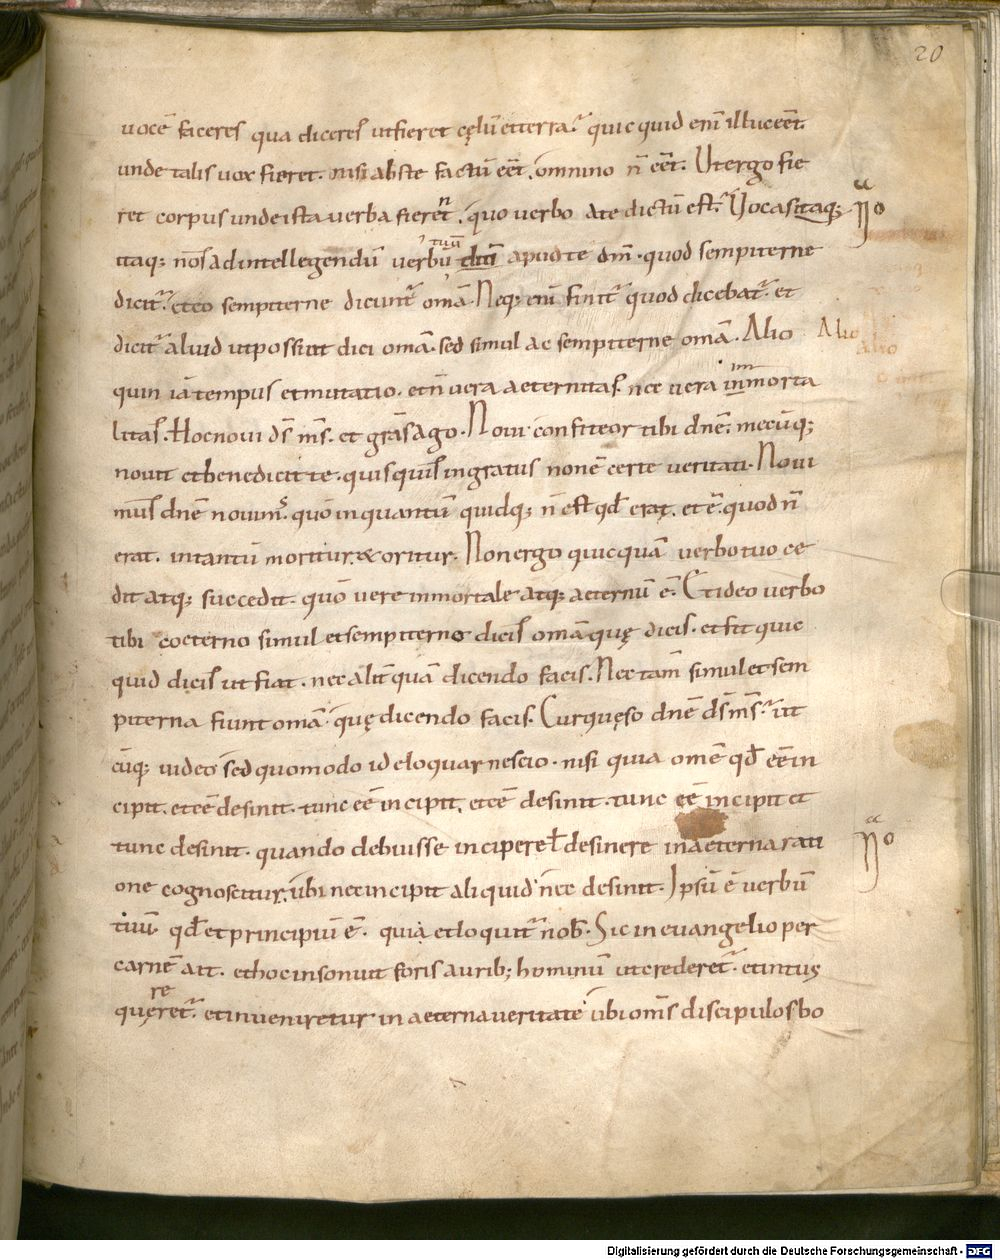 20
uocē faceres qua diceres ut fieret cęlū et terra. quicquid enī illud eēt
unde talis uox fieret. nisi abs te factū eēt. omnino n̄ eēt. Ut ergo fie
ret corpus unde ista uerba fierent. quo uerbo a te dictū est. Uocas itaq;
itaq; nōs ad intellegendū uerbū tuū apud te dm̄. quod sempiterne
dicit̄. et eo sempiterne dicunt̄ om̄a. Neq; enī finit̄ quod dicebat̄. et
dicit̄ aliud ut possint dici om̄a. sed simul ac sempiterne om̄a. Alio
Alio
Alio
quin iā tempus et mutatio. et n̄ uera aeternitas. nec uera inmorta
im
litas. Hoc noui ds̄ ms̄. et grās ago. Noui confiteor tibi dnē. mecūq;
nouit et benedicit te. quisquis ingratus non ē certe ueritati. Noui
mus dnē nouim̄. quō in quantū quidq; n̄ est qd̄ erat. et ē. quod n̄
erat. in tantū moritur & oritur. Non ergo quicquā uerbo tuo ce
dit atq; succedit. quō uere inmortale atq; aeternū ē. Et ideo uerbo
tibi coeterno simul et sempiterne dicis om̄a quę dicis. et fit quic
quid dicis ut fiat. nec alit̄ quā dicendo facis. Nec tam̄ simul et sem
piterna fiunt om̄a. quę dicendo facis. Cur quęso dnē ds̄ ms̄. ut
cūq; uideo sed quomodo id eloquar nescio. nisi quia omē qd̄ eē in
cipit. et eē desinit. tunc eē incipit. et eē desinit. tunc eē incipit et
tunc desinit. quando debuisse incipere ł desinere in aeterna rati
one cognoscitur. ubi nec incipit aliquid nec desinit. Ipsū ē uerbū
tuū qd̄ et principiū ē. quia et loquit̄ nob̄. Sic in euangelio per
carnē ait. et hoc insonuit foris aurib; hominū ut crederet̄. et intus
quęreret̄. et inueniretur in aeterna ueritate ubi om̄s discipulos bo
Digitalisierung gefördert durch die Deutsche Forschungsgemeinschaft - DFG